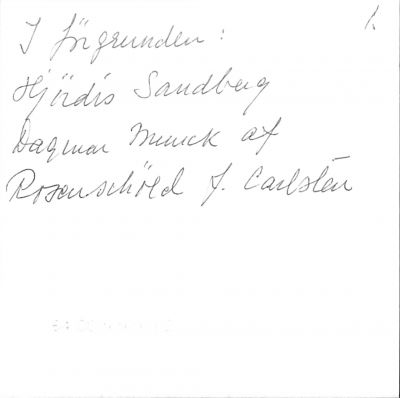 1.
I förgrunden:
Hjördis Sandberg
Dagmar Munck af
Rosenschöld f. Carlstén